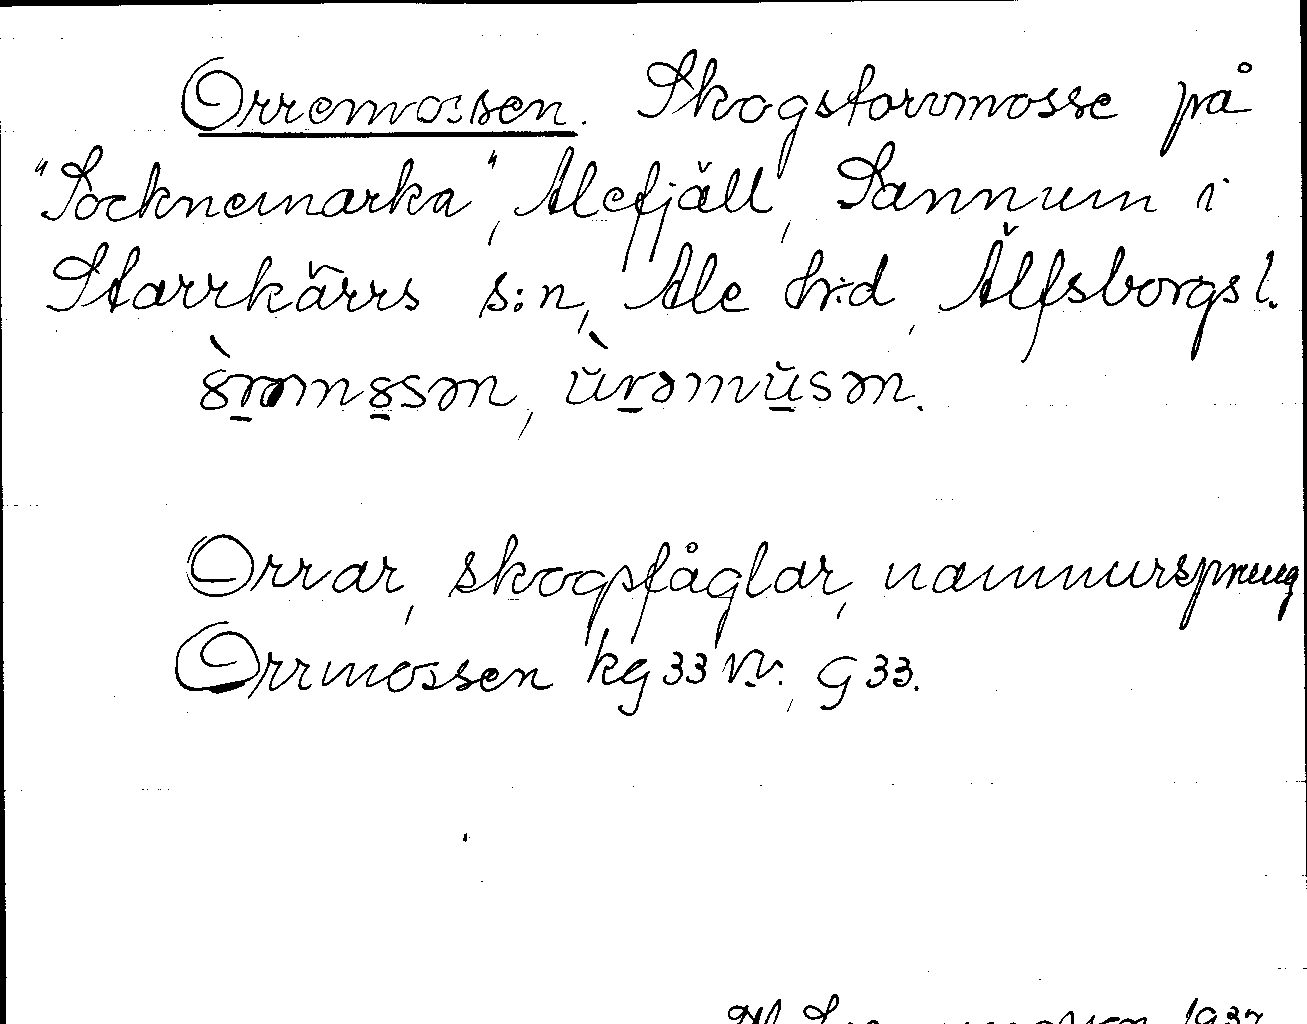 Orremossen. Skogstorvmosse på
"Socknemarka", Alefjäll, Sannum i
Starrkärrs s:n, Ale h:d, Älfsborgs l.
Orrar, skogsfåglar, namnursprung
Orrmossen kg 33 NV., G 33.
1937